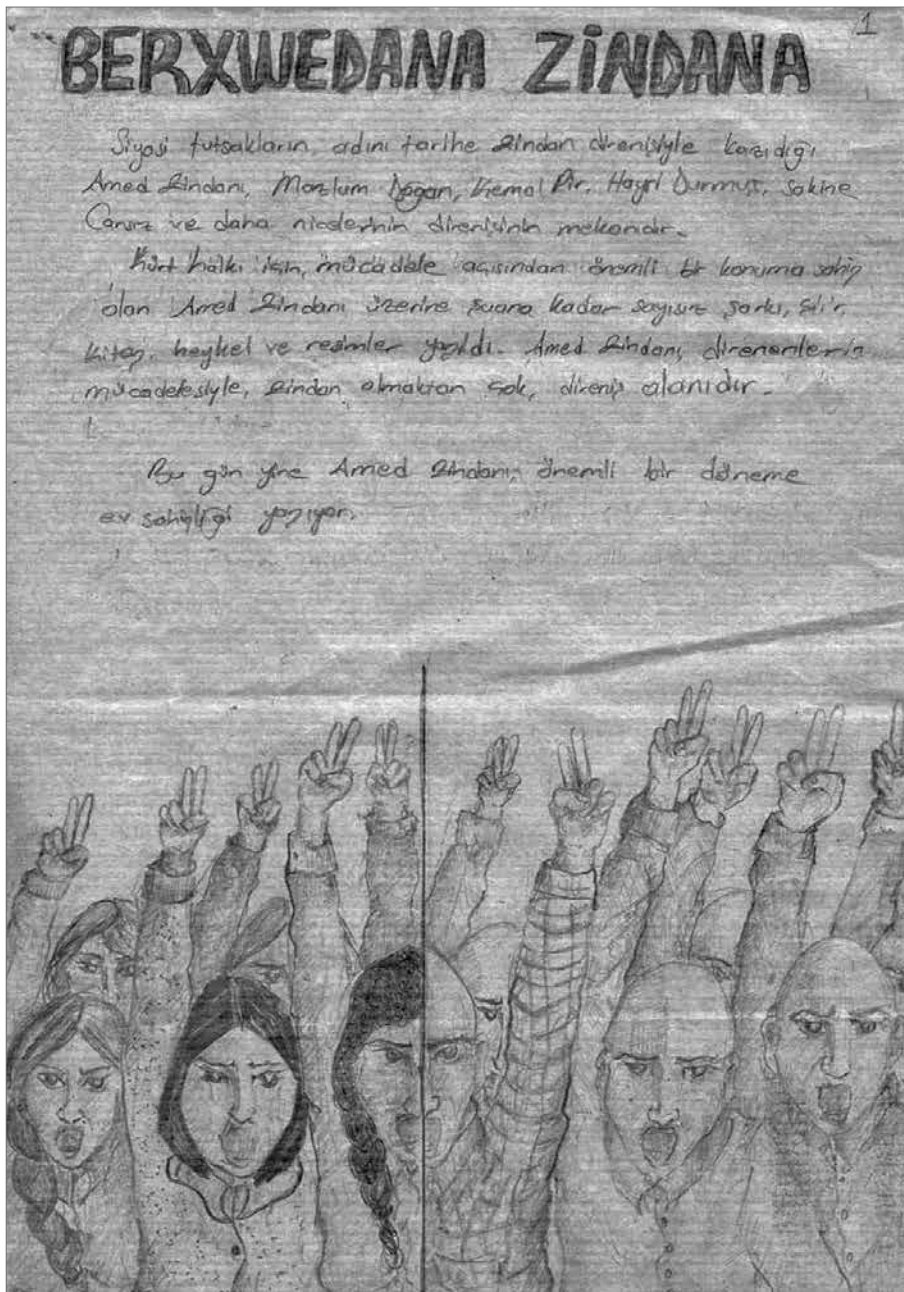 1
BERXWEDANA ZİNDANA
Siyasi tutsakların, adını tarihe zindan direnişiyle kazıdığı
Amed Zindanı, Mazlum Doğan, Kemal Pir, Hayri Durmuş, Sakine
Cansız ve daha nicelerinin direnişinin mekanıdır.
Kürt halkı için, mücadele açısından önemli bir konuma sahip
olan Amed Zindanı üzerine şuana kadar sayısız şarkı, şiir,
kitap, heykel ve resimler yapıldı. Amed Zindanı, direnenlerin
mücadelesiyle, zindan olmaktan çok, direniş alanıdır.
Bu gün yine Amed Zindanı, önemli bir döneme
ev sahipliği yapıyor.